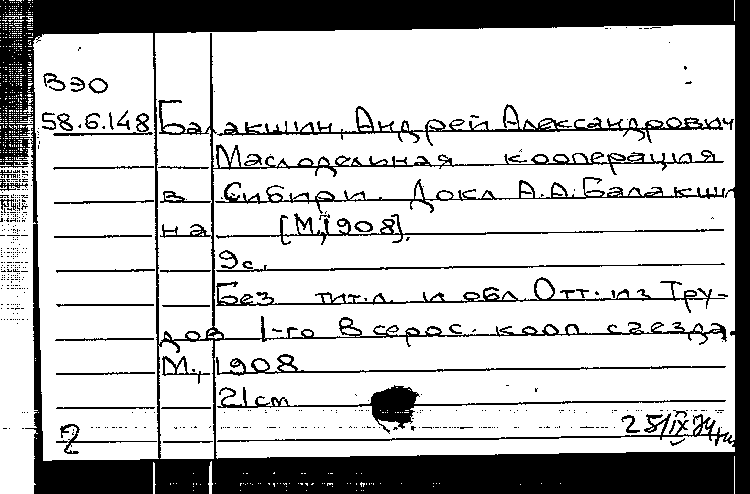 ВЭО
58.6.148 Балакшин, Андрей Александрович
Маслодельная кооперация
в Сибири. Докл А.А. Балакши
на [М., 1908].
9с.
Без тит.л. и обл Отт. из Тру-
дов 1-го Всерос. кооп съезда.
М., 1908
21cm
2 25/IX